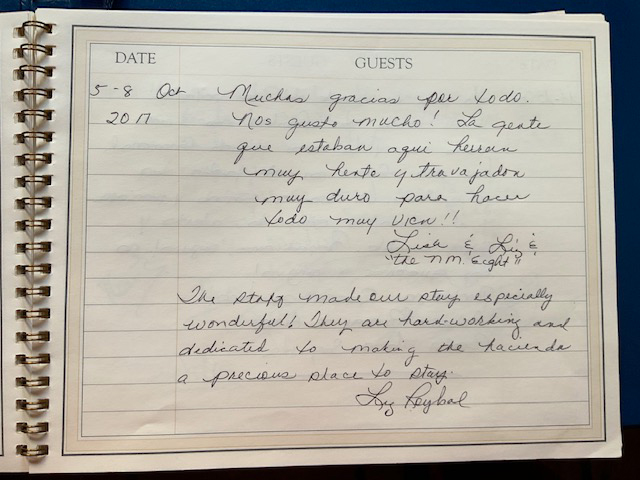 DATE GUESTS
5-8 Oct Muchas gracias por todo.
2017 Nos gusto mucho! La gente
que estaban aqui
muy y travajadon
muy duro para hacer
todo muy vien!!
& Liz &
"the N.M. Eight"!
The staff made our stay especially
wonderful! They are hard-working and
dedicated to making the hacienda
a precious place to stay.
Liz